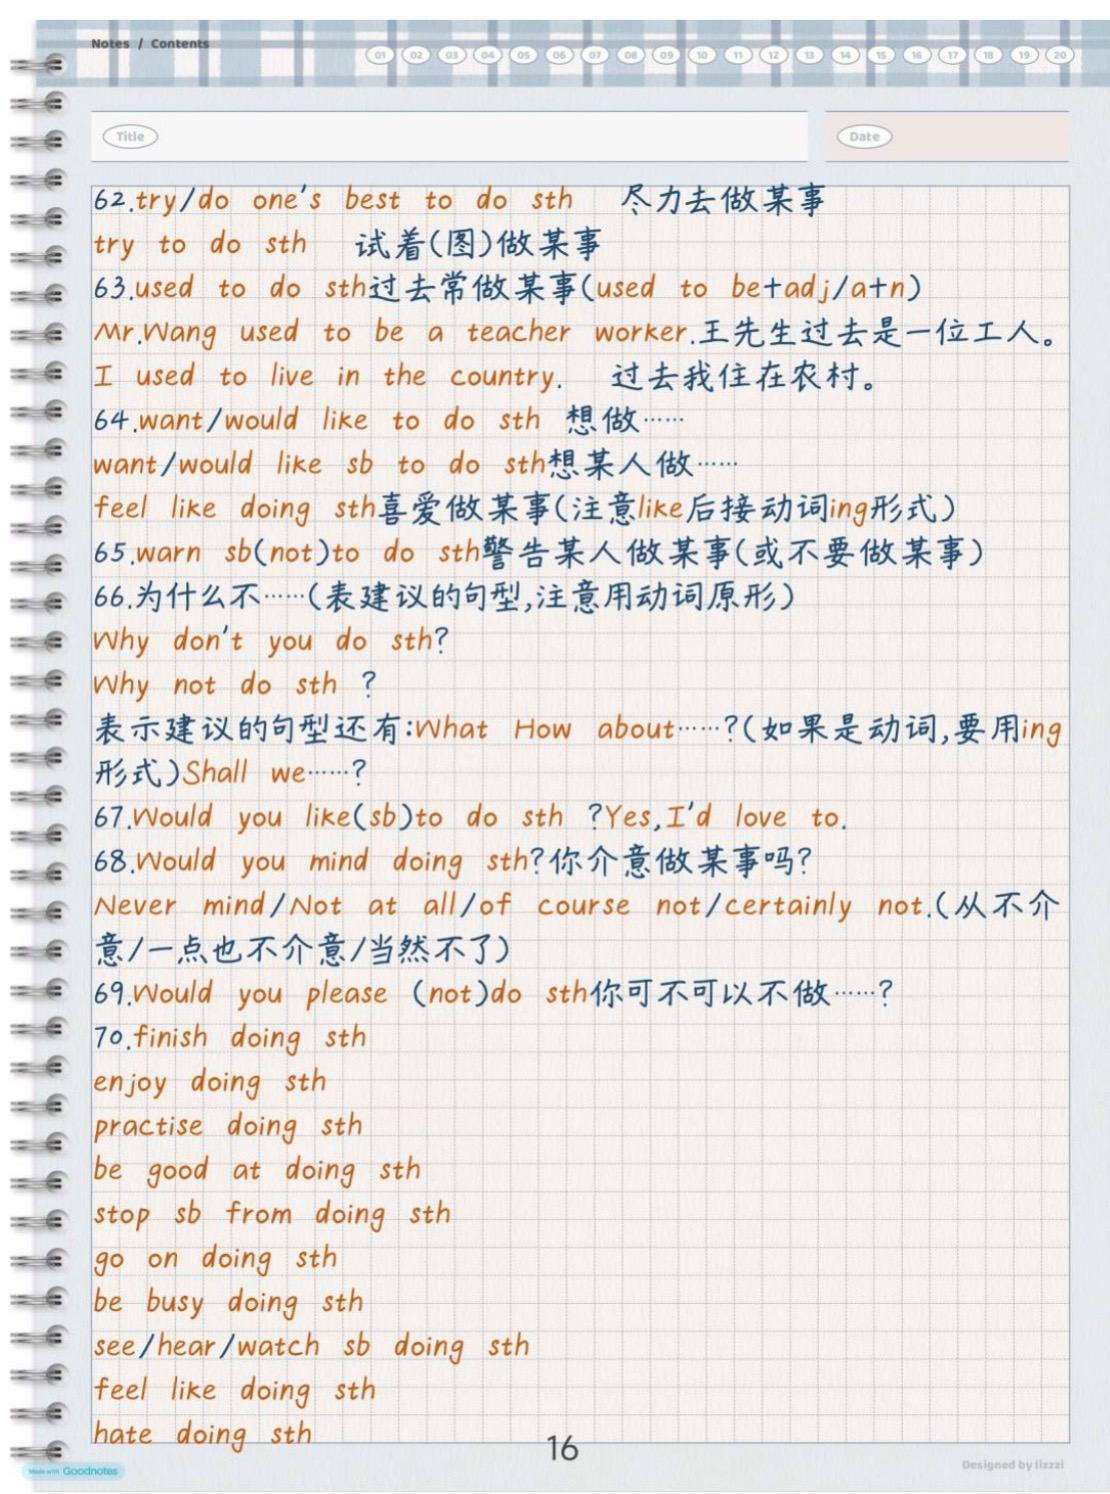 Notes / Contents
01 02 03 04 05 06 07 08 09 10 11 12 13 14 15 16 17 18 19 20
Title
Date
62.try/do one's best to do sth 尽力去做某事
try to do sth 试着(图)做某事
63.used to do sth过去常做某事(used to be+adj/a+n)
Mr.Wang used to be a teacher worker.王先生过去是一位工人。
I used to live in the country. 过去我住在农村。
64.want/would like to do sth 想做……
want/would like sb to do sth想某人做……
feel like doing sth喜爱做某事(注意like后接动词ing形式)
65.warn sb(not)to do sth警告某人做某事(或不要做某事)
66.为什么不……(表建议的句型,注意用动词原形)
Why don't you do sth?
Why not do sth ?
表示建议的句型还有:What How about……?(如果是动词,要用ing
形式)Shall we……?
67.Would you like(sb)to do sth ?Yes,I'd love to.
68.Would you mind doing sth?你介意做某事吗?
Never mind/Not at all/of course not/certainly not.(从不介
意/一点也不介意/当然不了)
69.Would you please (not)do sth你可不可以不做……?
70.finish doing sth
enjoy doing sth
practise doing sth
be good at doing sth
stop sb from doing sth
go on doing sth
be busy doing sth
see/hear/watch sb doing sth
feel like doing sth
hate doing sth
16
Made with Goodnotes
Designed by lizzzi